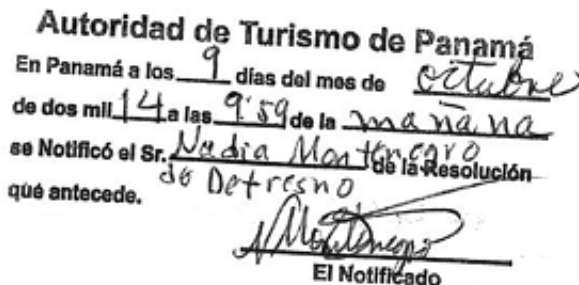 Autoridad de Turismo de Panamá
En Panamá a los 9 días del mes de octubre
de dos mil 14 a las 9:59 de la mañana
se Notificó el Sr. Nadia Montenegro de la Resolución
de Detresno
qué antecede.
Montenegro
El Notificado